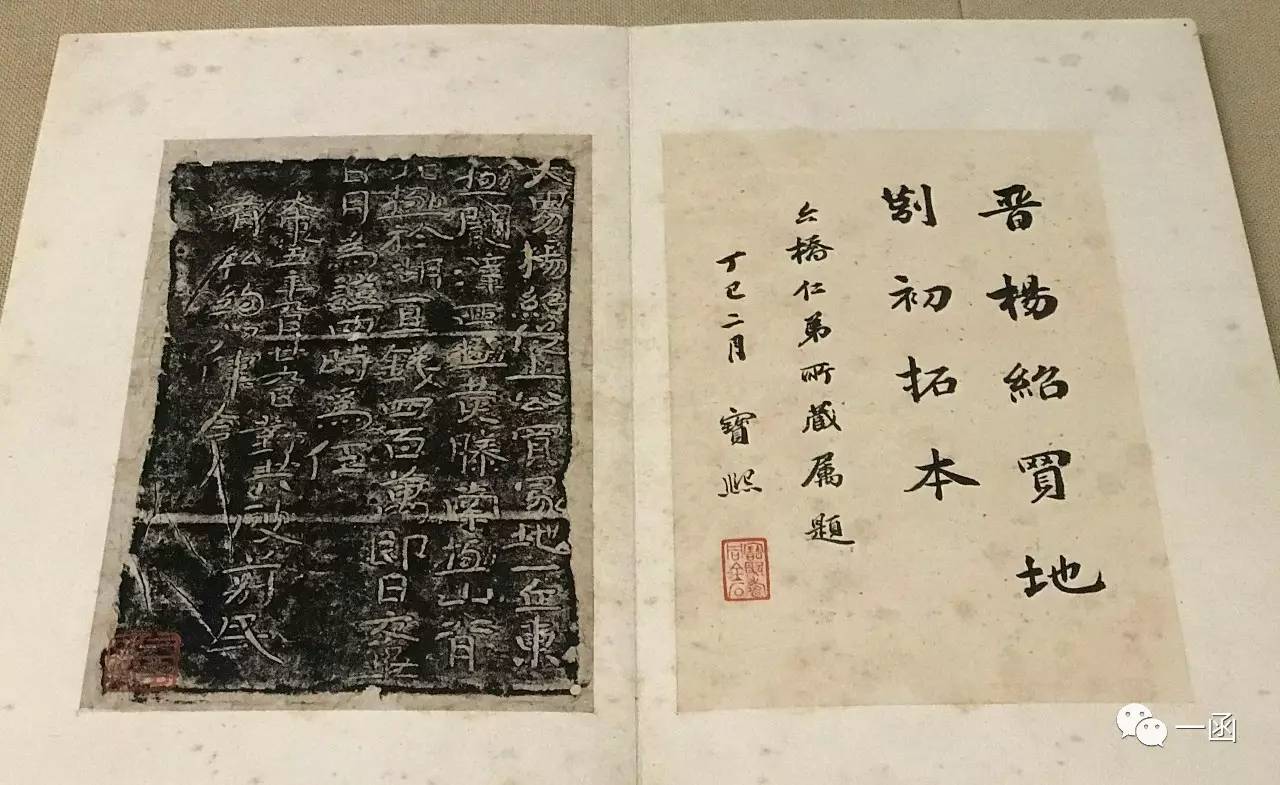 晋楊紹買地
莂初拓本
六橋仁弟所藏属題
丁巳二月 寶熙
大男楊紹從土公買冢地一丘東
極闞澤西極黃滕南極山背
北極於湖直錢四百萬即日交畢
日月為證四時為任
太康五年九月廿九日對共破莂民
有私約如律令
一函